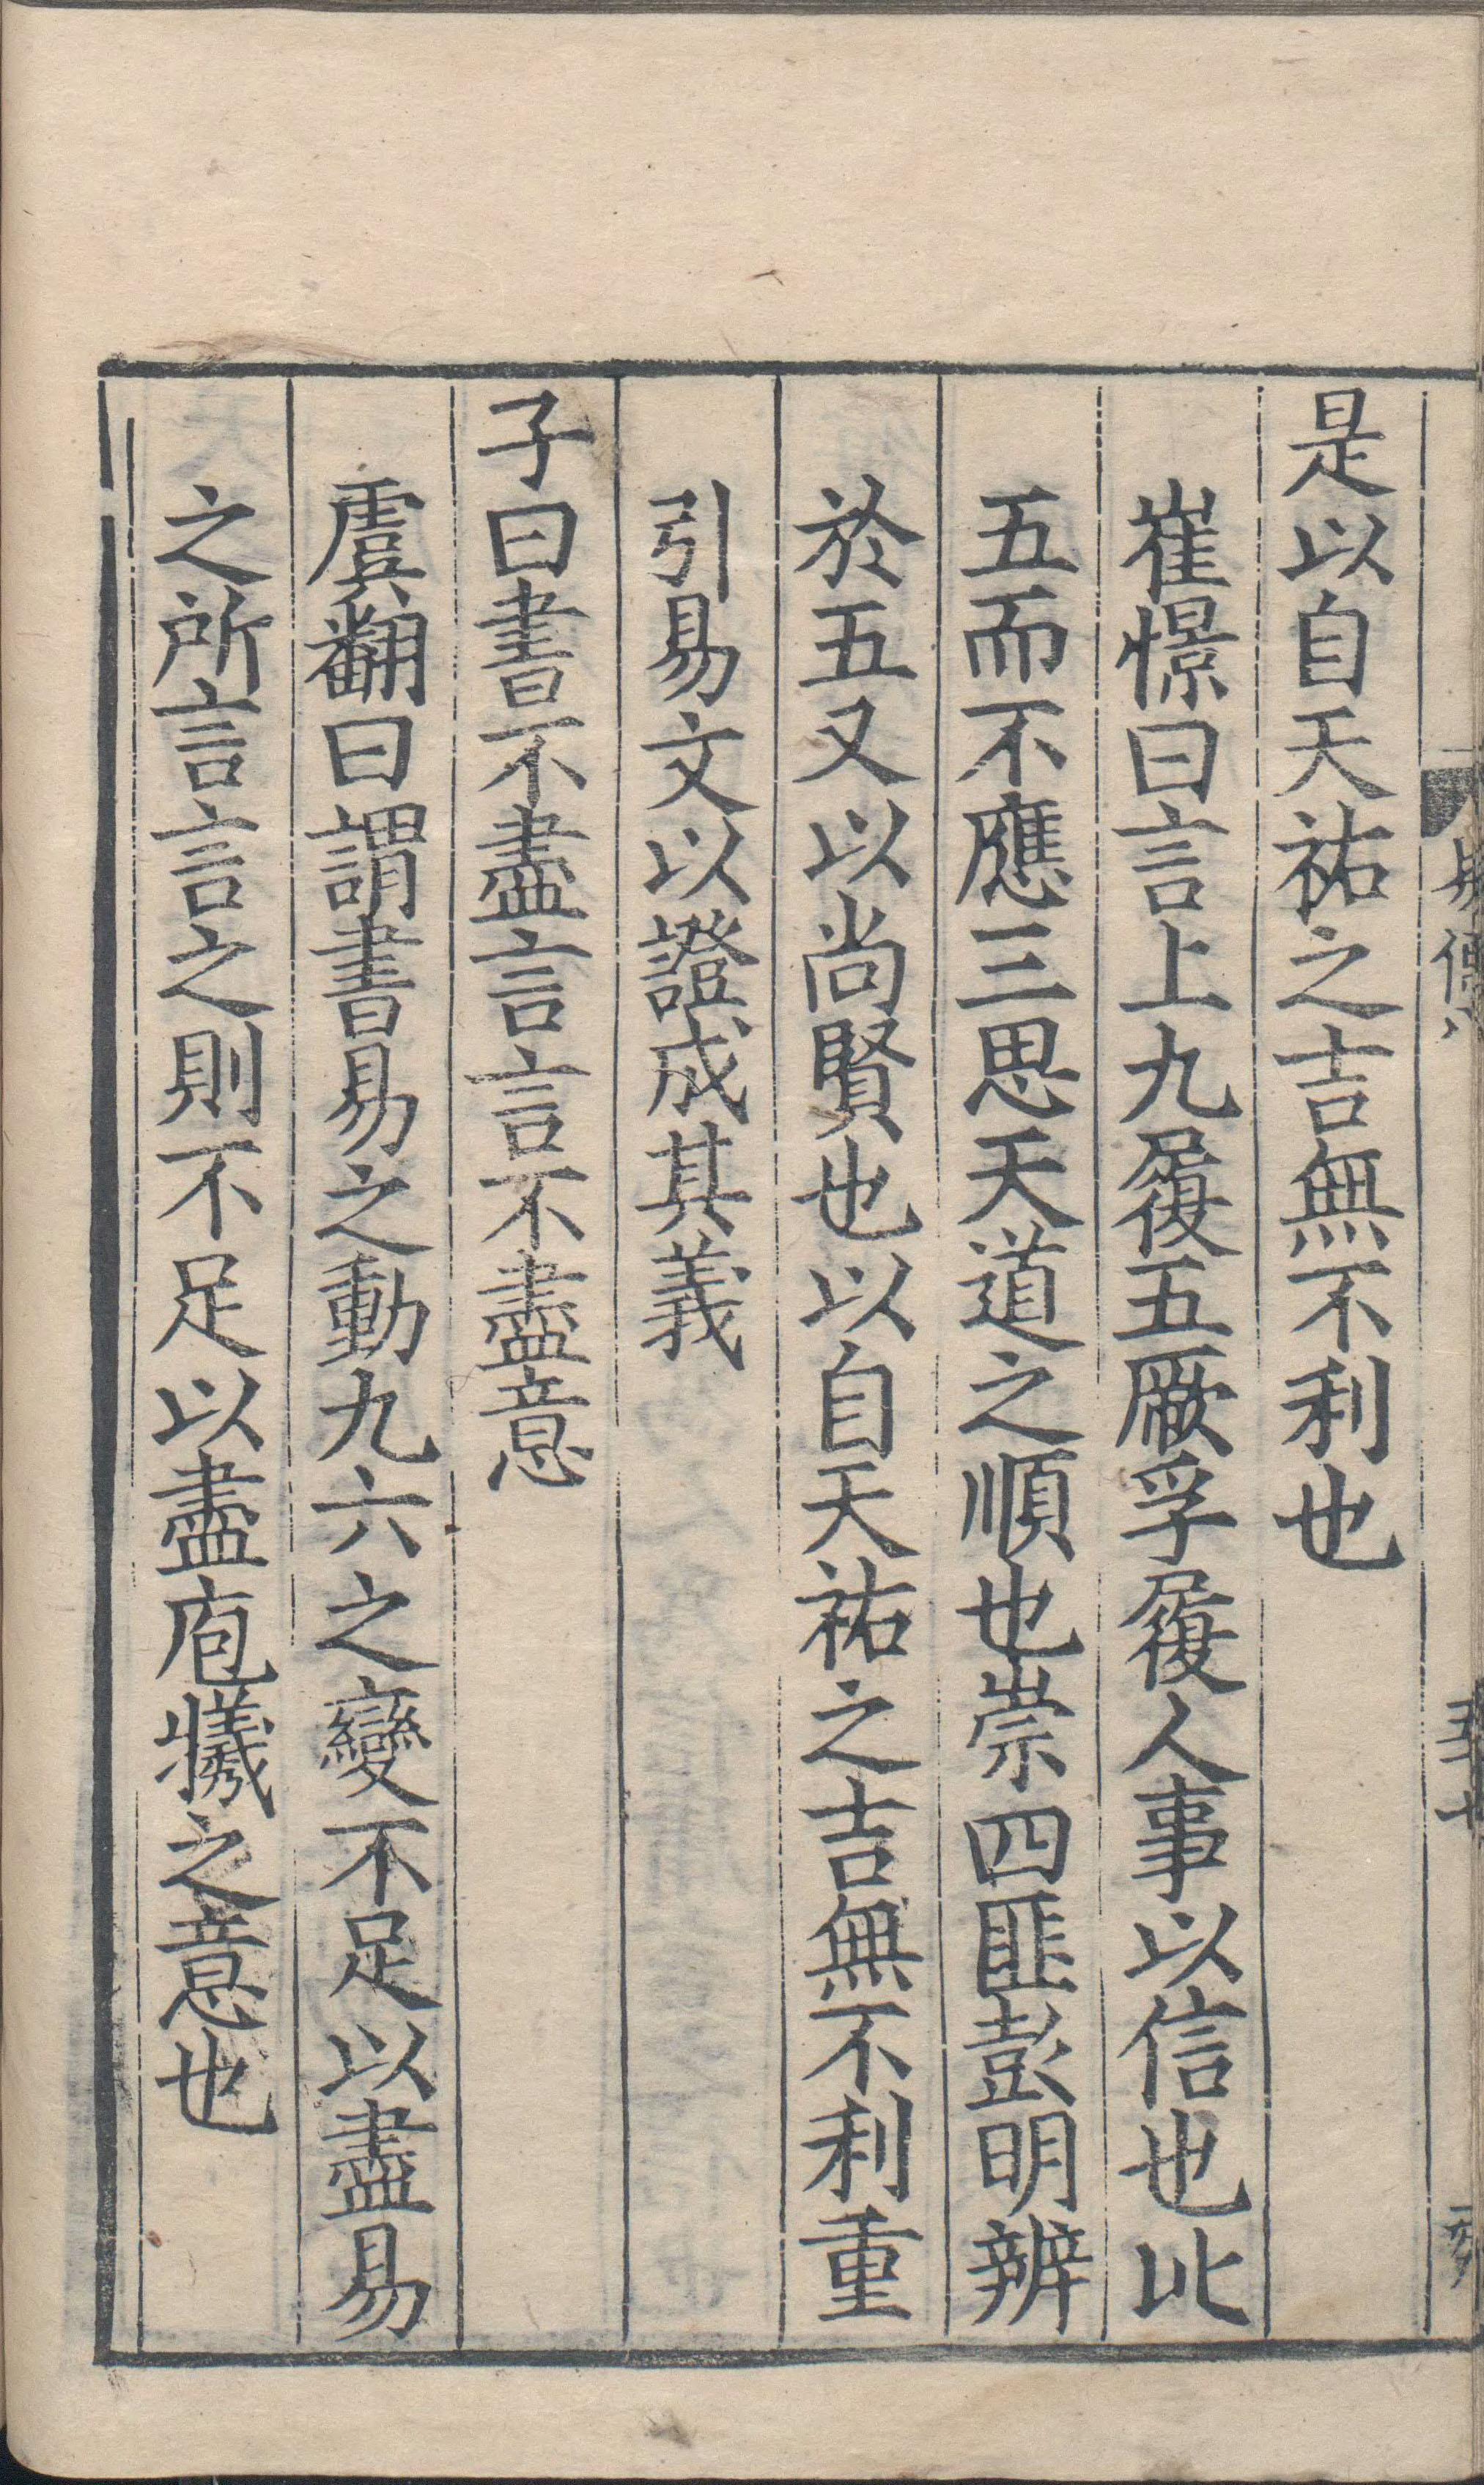 是以自天祐之吉無不利也
崔憬曰言上九履五厥孚履人事以信也比
五而不應三思天道之順也崇四匪彭明辨
於五又以尚賢也以自天祐之吉無不利重
引易文以證成其義
子曰書不盡言言不盡意
虞翻曰謂書易之動九六之變不足以盡易
之所言言之則不足以盡庖犧之意也